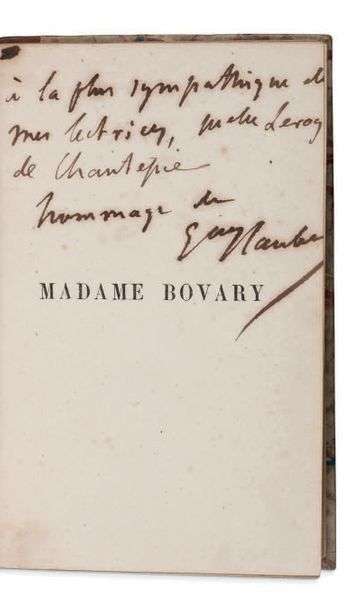 à la plus sympathique de
mes lectrices, Melle Leroy
de Chantepie
hommage de
Gve Flaubert
MADAME BOVARY